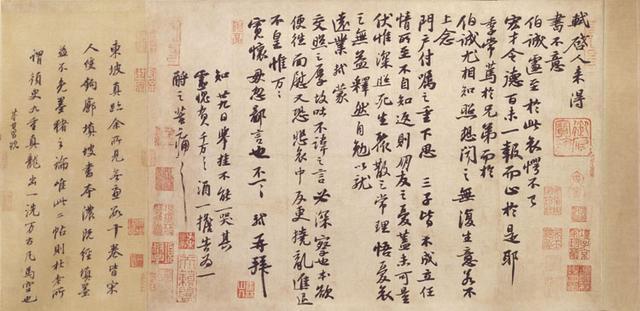 軾啓人來得
書不意
伯誠遽至於此哀愕不已
宏才令德百未一報而止於是耶
季常篤於兄弟而於
伯誠尤相知照想聞之無復生意若不
上念
門戶付囑之重下思三子皆不成立任
情所至不自知返則朋友之憂蓋未可量
伏惟深照死生聚散之常理悟憂哀
之無益釋然自勉以就
遠業軾蒙
交照之厚故吐不諱之言必深察也本欲
便往面慰又恐悲哀中反更撓亂進退
不皇惟万万
寬懷毋忽鄙言也不一一軾再拜
知廿九日舉挂不能一哭其
靈愧負千万千万酒一擔告為一
酹之苦痛苦痛
東坡真跡余所見無慮數十卷皆宋
人雙鉤廓填坡書本濃既經填墨
益不免墨豬之論唯此二帖則杜老所
謂須臾九重真龍出一洗万古凡馬空也
董其昌題